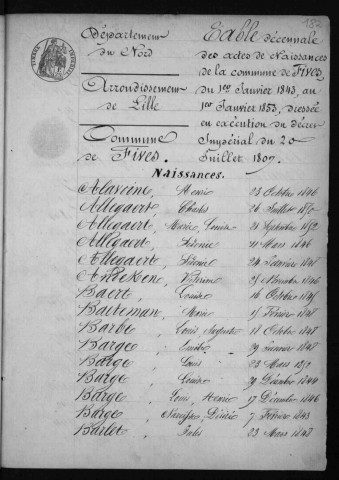 152
TIMBRE IMPÉRIAL
Département
du Nord
Arrondissement
de Lille
Commune
de Fives
Table décennale
des actes de Naissances
de la commune de Fives,
du 1er Janvier 1843, au
1er Janvier 1853, dressée
en exécution du décret
Impérial du 20
Juillet 1807.
Naissances.
Henri 28 Octobre 1846
Allegaert, Charles 26 Juillet
Allegaert, Marie Louise 21 Septembre 1852
Allegaert, 11 Mars 1846
Allegaert, 24
Novembre 1846
Baert, Louise 16 Octobre
Baeteman, Marie 15 Février 1848
Barbe, Louis Auguste 18 Octobre 1848
Barge, 29 Janvier 1848
Barge, Louis 23 Mars
Barge, Louise 29 Décembre 1844
Barge, Louis Henri 17 Décembre 1846
Barge, Narcisse Désiré 7 Février 1843
Barlet, Jules 23 Mars 1848